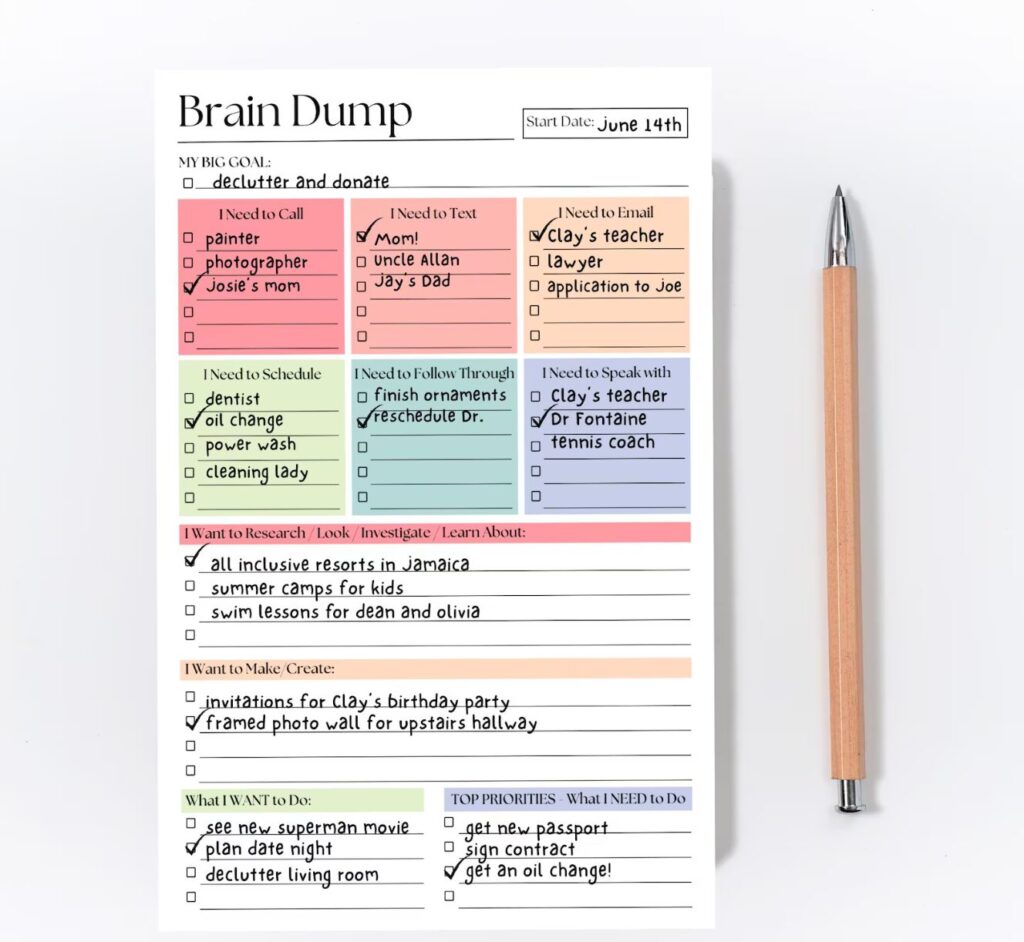 Brain Dump
Start Date: June 14th
MY BIG GOAL:
declutter and donate
I Need to Call
painter
photographer
Josie's mom
I Need to Text
Mom!
Uncle Allan
Jay's Dad
I Need to Email
Clay's teacher
lawyer
application to Joe
I Need to Schedule
dentist
oil change
power wash
cleaning lady
I Need to Follow Through
finish ornaments
reschedule Dr.
I Need to Speak with
Clay's teacher
Dr Fontaine
tennis coach
I Want to Research / Look / Investigate / Learn About:
all inclusive resorts in Jamaica
summer camps for kids
swim lessons for dean and olivia
I Want to Make/Create:
invitations for Clay's birthday party
framed photo wall for upstairs hallway
What I WANT to Do:
see new superman movie
plan date night
declutter living room
TOP PRIORITIES - What I NEED to Do
get new passport
sign contract
get an oil change!